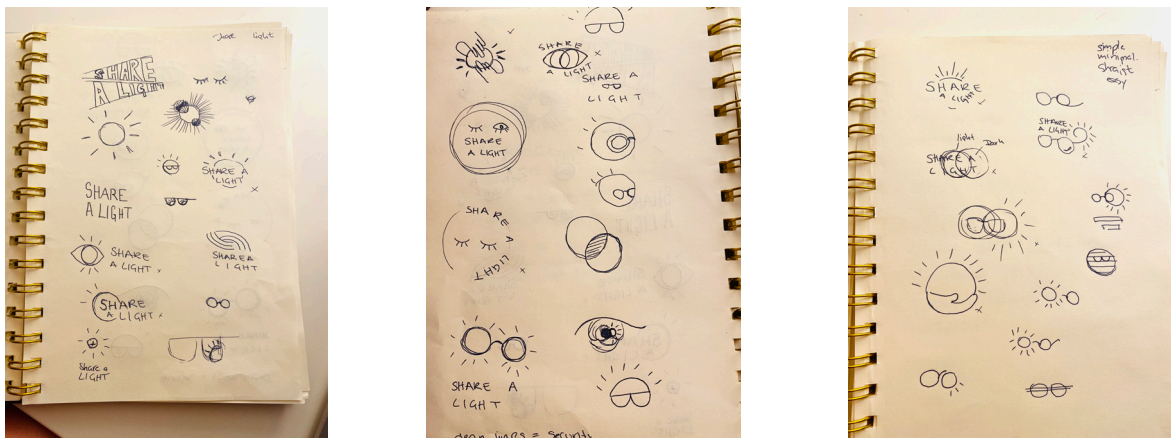 share light
SHARE
A LIGHT
SHARE A
LIGHT
SHARE
A LIGHT
SHARE
A LIGHT
SHARE A
LIGHT
SHARE
A LIGHT
Share a
LIGHT
SHARE
A LIGHT
SHARE A
LIGHT
SHARE
A LIGHT
SHARE A
LIGHT
SHARE A
LIGHT
clean lines = security
simple
minimal.
straight
easy
SHARE
A LIGHT
SHARE
A LIGHT
light Dark
SHARE A
LIGHT